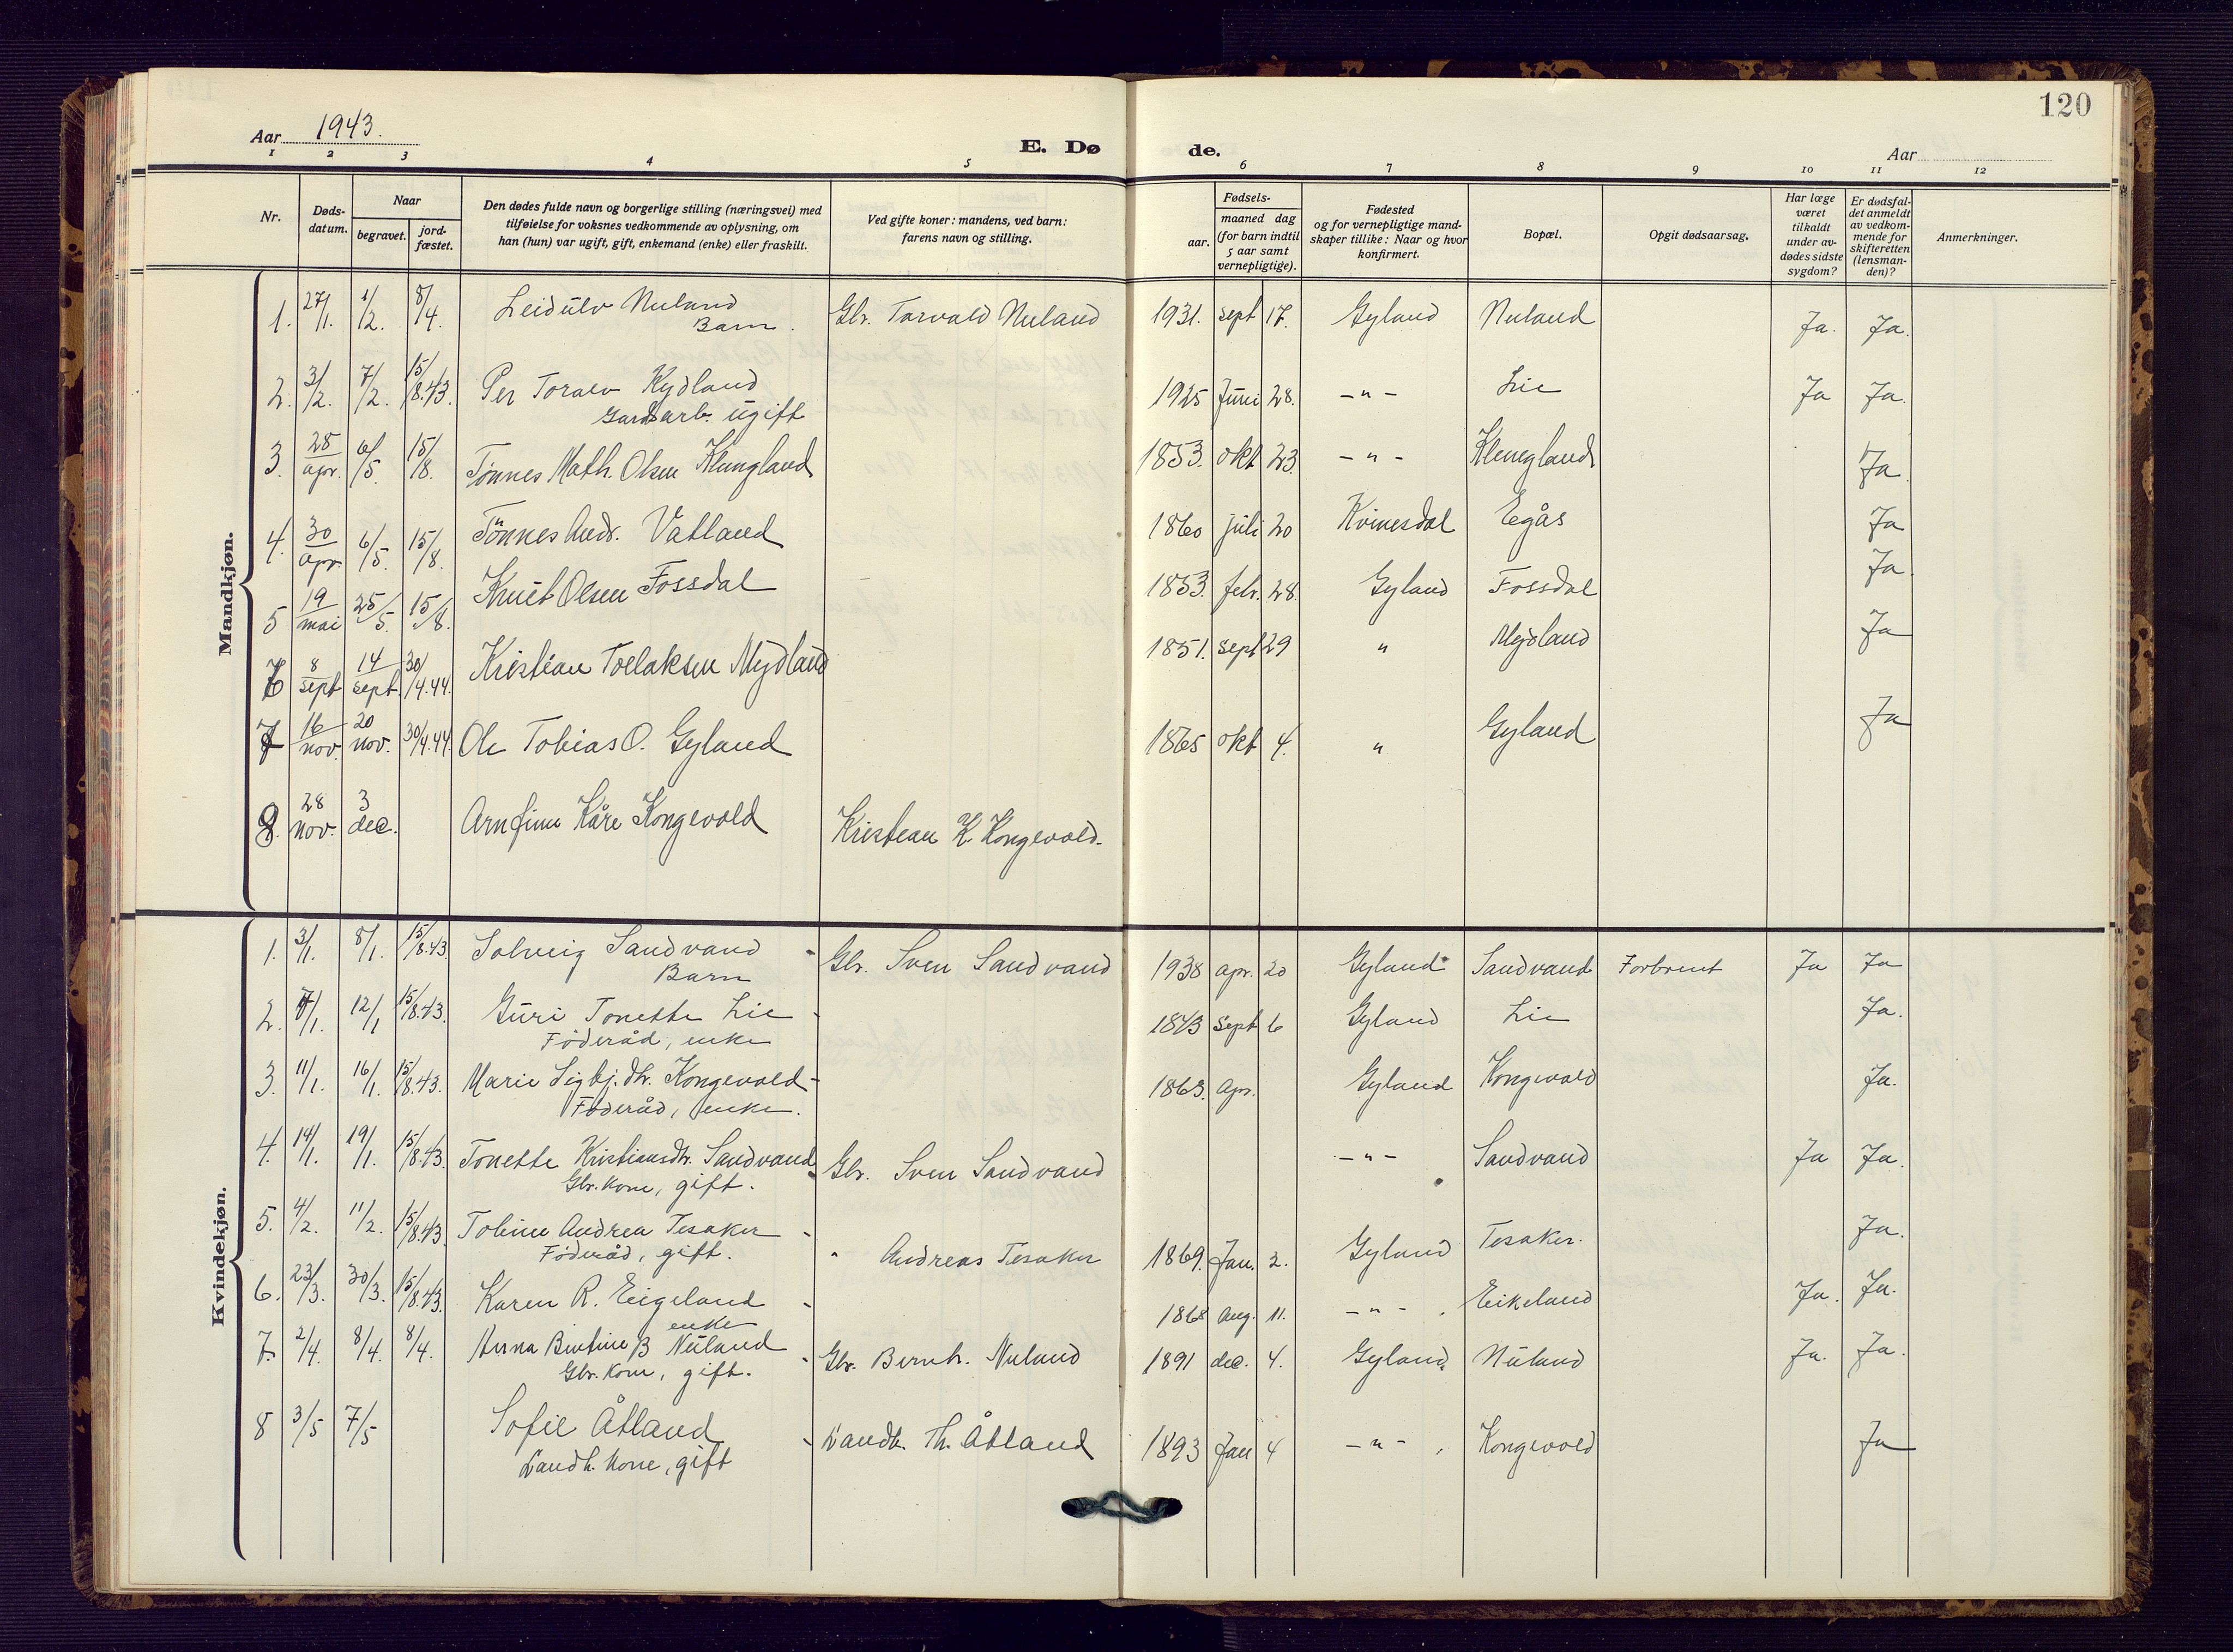 120
Aar 1943.
E. Døde.
Aar
1 2 3 4 5 6 7 8 9 10 11 12
Nr.
Døds-
datum.
Naar
begravet.
jord-
fæstet.
Den dødes fulde navn og borgerlige stilling (næringsvei) med
tilføielse for voksnes vedkommende av oplysning, om
han (hun) var ugift, gift, enkemand (enke) eller fraskilt.
Ved gifte koner: mandens, ved barn:
farens navn og stilling.
Fødsels-
aar.
maaned dag
(for barn indtil
5 aar samt
vernepligtige).
Fødested
og for vernepligtige mand-
skaper tillike: Naar og hvor
konfirmert.
Bopæl.
Opgit dødsaarsag.
Har læge
været
tilkaldt
under av-
dødes sidste
sygdom?
Er dødsfal-
det anmeldt
av vedkom-
mende for
skifteretten
(lensman-
den)?
Anmerkninger.
Mandkjøn.
1. 27/1. 1/2. 8/4. Leidulv Nuland Gbr. Torvald Nuland 1931. sept 17. Gyland Nuland Ja. Ja.
Barn.
2. 3/2. 7/2. 15/8.43. Per Toralv Kydland 1925 Juni 28. -"- Lie Ja Ja.
Gardsarb. ugift
3. 28/apr. 6/5. 15/8. Tønnes Math. Olsen Klungland 1853. okt 23. -"- Klungland Ja.
4. 30/apr. 6/5. 15/8. Tønnes Andr. Vatland 1860 juli 20 Kvinesdal Egås Ja
5 19/mai 25/5. 15/8. Knut Olsen Fossdal 1853. febr. 28. Gyland Fossdal Ja.
6 8/sept 14/sept 30/4.44. Kristian Torlaksen Mydland 1851. sept 29 " Mydland Ja
7 16/nov. 20 nov. 30/4.44. Ole Tobias O. Gyland 1865 okt 4. " Gyland Ja
8. 28 nov. 3 dec. Arnfinn Kåre Kongevold Kristian K. Kongevold.
Kvindekjøn.
1. 3/1. 8/1. 15/8.43. Solveig Sandvand - Gbr. Sven Sandvand 1938 apr. 20 Gyland Sandvand Forbrent Ja Ja
Barn
2. 7/1. 12/1 15/8.43. Guri Tonette Lie - 1843 sept 6 Gyland Lie Ja.
Føderåd, enke
3. 11/1. 16/1. 15/8.43. Marie Sigbj.dtr. Kongevold - 1863. Apr. Gyland Kongevold Ja.
Føderåd, enke.
4. 14/1. 19/1. 15/8.43. Tonette Kristiansdtr. Sandvand - Gbr. Sven Sandvand -"- Sandvand Ja Ja.
Gbr. kone, gift.
5. 4/2. 11/2. 15/8.43. Toline Andrea Tesaker - " Andreas Tesaker 1869. Jan. 2. Gyland Tesaker. Ja.
Føderåd, gift.
6. 23/3. 30/3. 15/8.43. Karen R. Eigeland - 1868 Aug. 11. -"- . Eikeland Ja. Ja.
enke
7. 2/4. 8/4. 8/4. Anna Bertine B Nuland - Gbr. Bernh. Nuland 1891 dec. 4. Gyland Nuland Ja. Ja.
Gbr. kone, gift.
8 3/5 7/5 Sofie Åtland - Landh. Th. Åtland 1893 Jan 4 -"- , Kongevold Ja
Landh. kone, gift